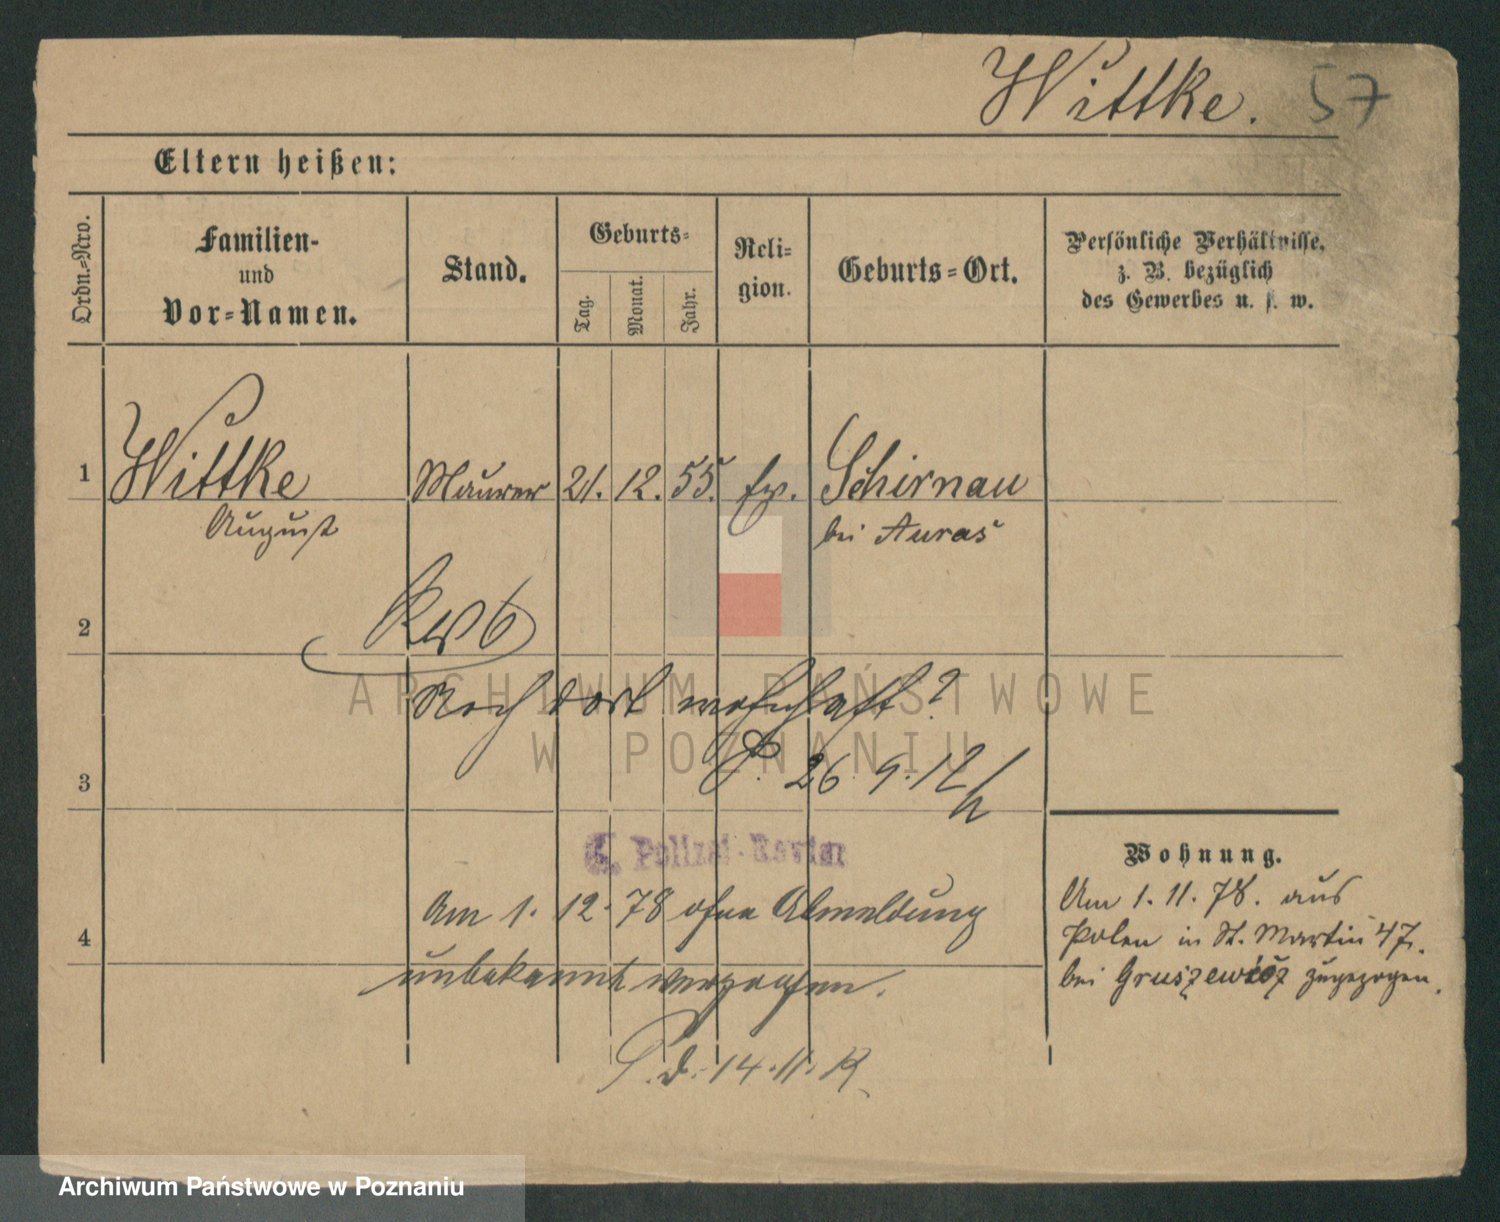 Wittke. 57
Eltern heißen:
Ordn.-Nro.
Familien-
und
Vor-Namen.
Stand.
Geburts-
Tag.
Monat.
Jahr.
Reli-
gion.
Geburts-Ort.
Persönliche Verhältnisse,
z. B. bezüglich
des Gewerbes u. s. w.
1 Wittke Maurer 21. 12. 55. Schirnau
August bei Auras
2
Noch dort wohnhaft?
3
26. 9. 12
Polizei-Revier
Wohnung.
Am 1. 11. 78. aus
Polen in St. Martin 47.
bei Gruszewicz zugezogen.
4
Am 1. 12. 78 ohne Abmeldung
unbekannt verzogen.
14. 11.
ARCHIWUM PAŃSTWOWE
W POZNANIU
Archiwum Państwowe w Poznaniu